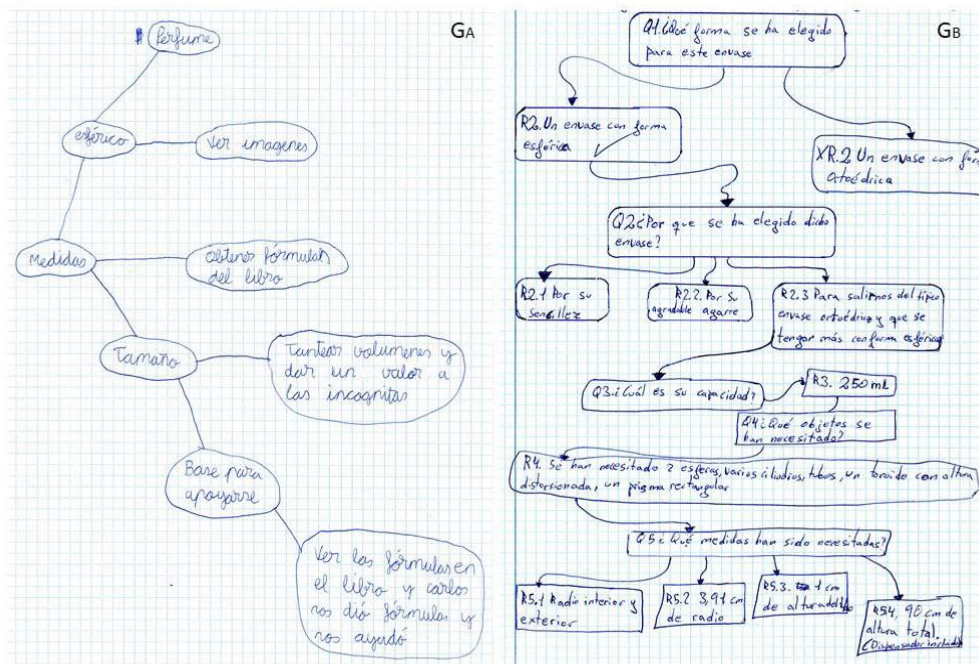 GA
Perfume
esférico
Ver imagenes
Medidas
Obtener fórmulas
del libro
Tamaño
Tantear volumenes y
dar un valor a
las incognitas
Base para
apoyarse
Ver las fórmulas en
el libro y carlos
nos dió fórmulas y
nos ayudó
GB
Q1.¿Qué forma se ha elegido
para este envase
R2. Un envase con forma
esférica
XR.2 Un envase con for
Ortoédrica
Q2¿Por que se ha elegido dicho
envase?
R2.1 Por su
sencillez
R2.2. Por su
agradable agarre
R2.3 Para salirnos del típico
envase ortoédrico y que se
tengan más con forma esférica
Q3.¿Cuál es su capacidad?
R3. 250 mL
Q4¿Qué objetos se
han necesitado?
R4. Se han necesitado 2 esferas, varios cilindros, tubos, un toroide con altura
distorsionada, un prisma rectangular
Q5¿Qué medidas han sido necesitadas?
R5.1 Radio interior y
exterior
R5.2 3,91 cm
de radio
R5.3. 1 cm
de altura del
R5.4, 90 cm de
altura total.
(Dispensador incluido)